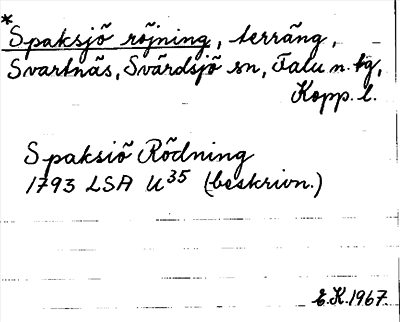 *
Spaksjö röjning, terräng,
Svartnäs, Svärdsjö sn, Falu n. tg,
Kopp. l.
Spaksiö Rödning
1793 LSA U35 (beskrivn.)
E.K. 1967.